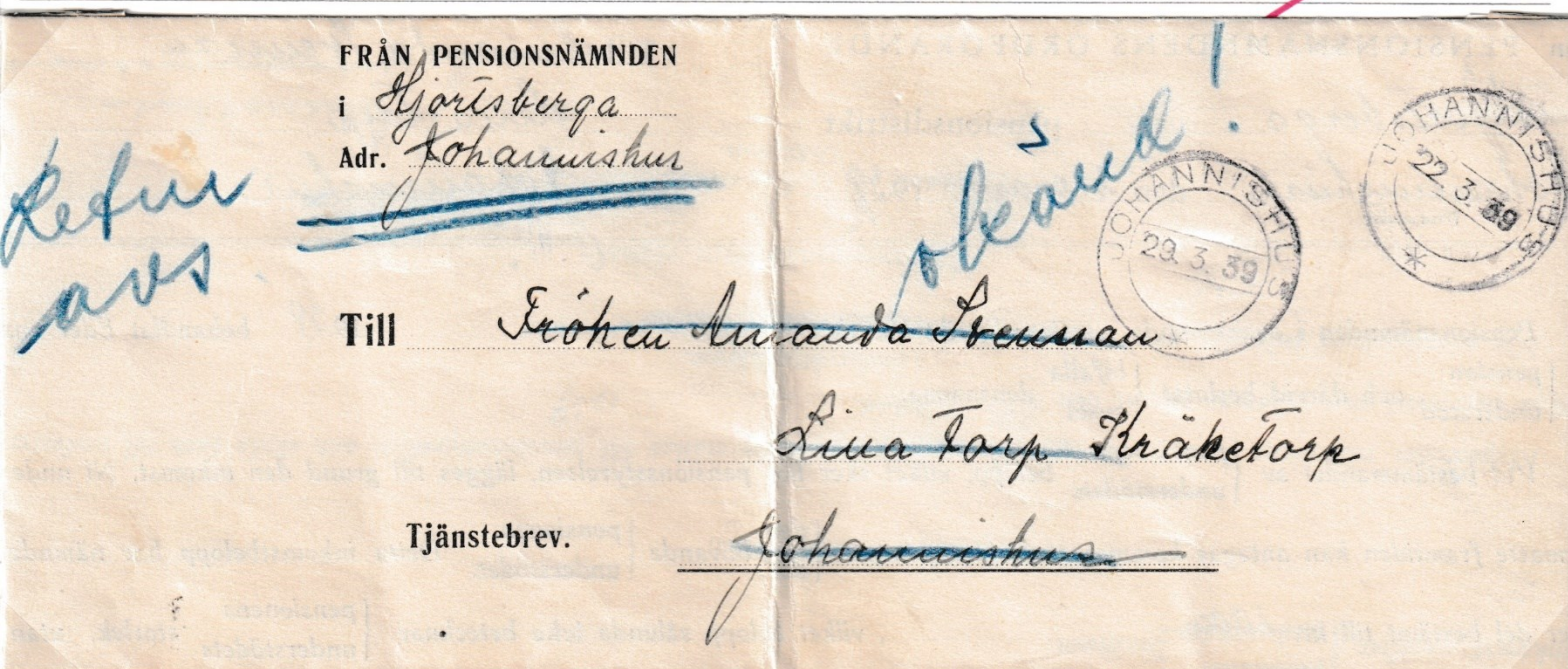 FRÅN PENSIONSNÄMNDEN
i Hjortsberga
Adr. Johannishus
Retur
avs
okänd!
JOHANNISHUS
29. 3. 39
JOHANNISHUS
22. 3. 39
Till Fröken Amanda Svensson
Lina Torp Kråketorp
Tjänstebrev.
Johannishus